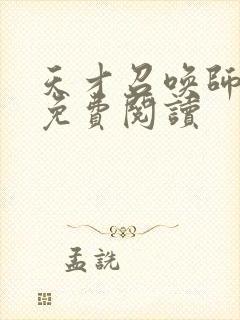 天才召喚師
免費閱讀
孟詵